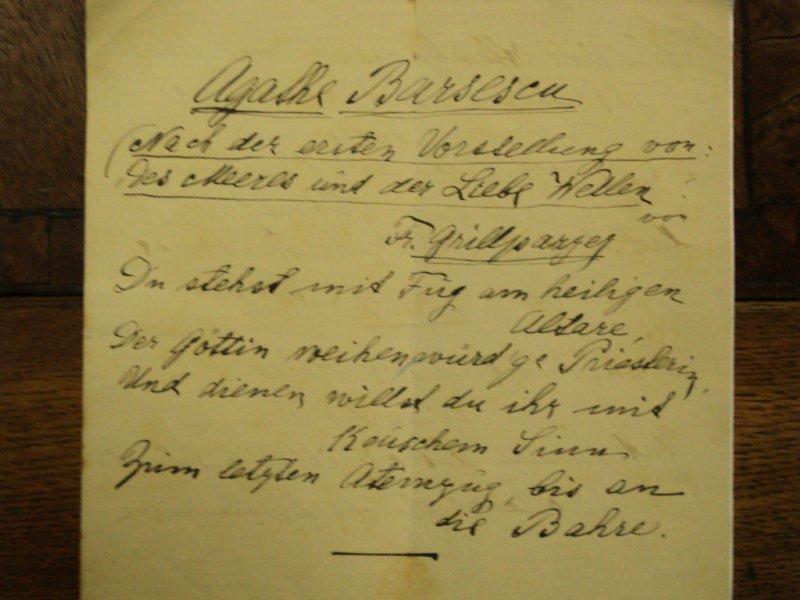 Agathe Barsescu
(Nach der ersten Vorstellung von:
Des Meeres und der Liebe Wellen
von
Fr. Grillparzer
Du stehst mit Fug am heiligen
Altare,
Der Göttin weihenwürd'ge Priesterin,
Und dienen willst du ihr mit
Keuschem Sinn
Zum letzten Atemzug, bis an
die Bahre.